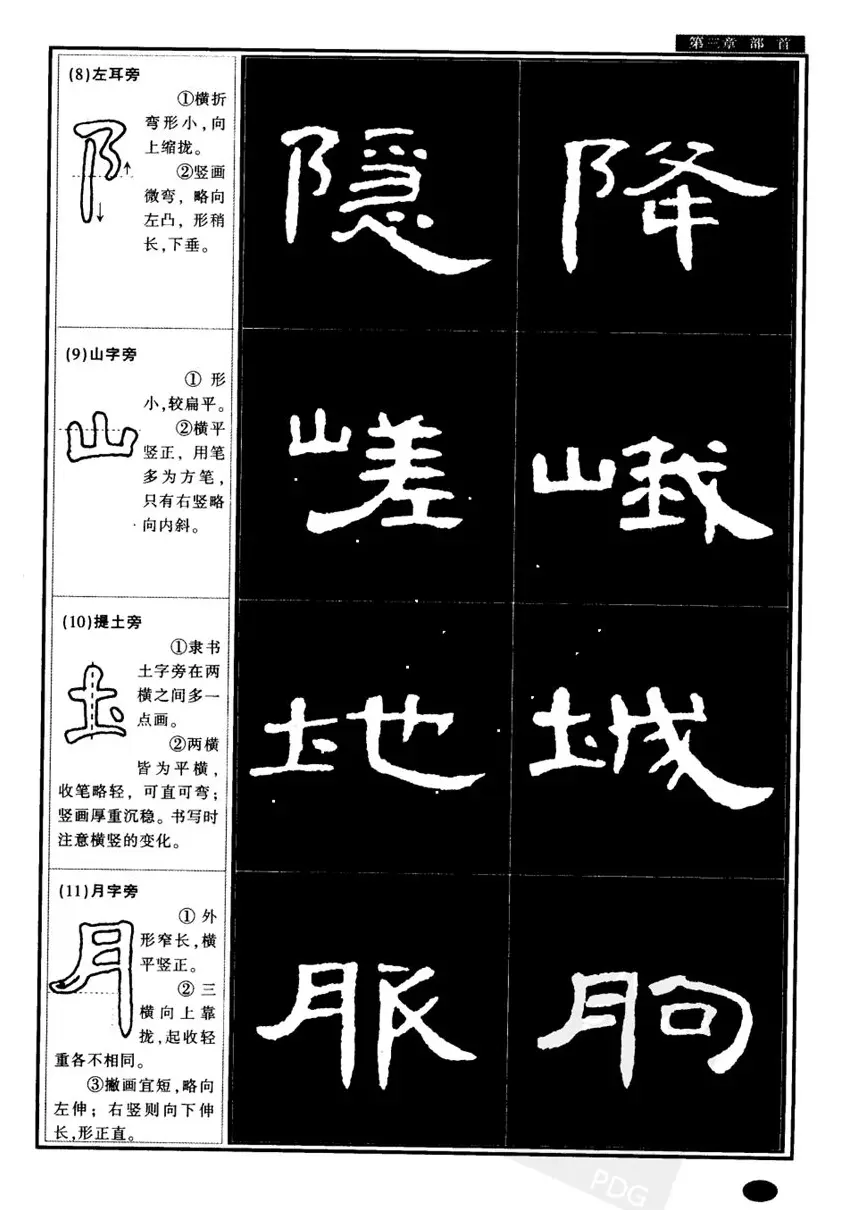 第三章 部 首
(8)左耳旁
①横折
弯形小,向
上缩拢。
②竖画
微弯，略向
左凸，形稍
长,下垂。
隐 降
(9)山字旁
① 形
小,较扁平。
②横平
竖正，用笔
多为方笔，
只有右竖略
向内斜。
嵯 峨
(10)提土旁
①隶书
土字旁在两
横之间多一
点画。
②两横
皆为平横，
收笔略轻，可直可弯；
竖画厚重沉稳。书写时
注意横竖的变化。
地 城
(11)月字旁
① 外
形窄长,横
平竖正。
② 三
横向上靠
拢,起收轻
重各不相同。
③撇画宜短,略向
左伸；右竖则向下伸
长,形正直。
服 朐
PDG